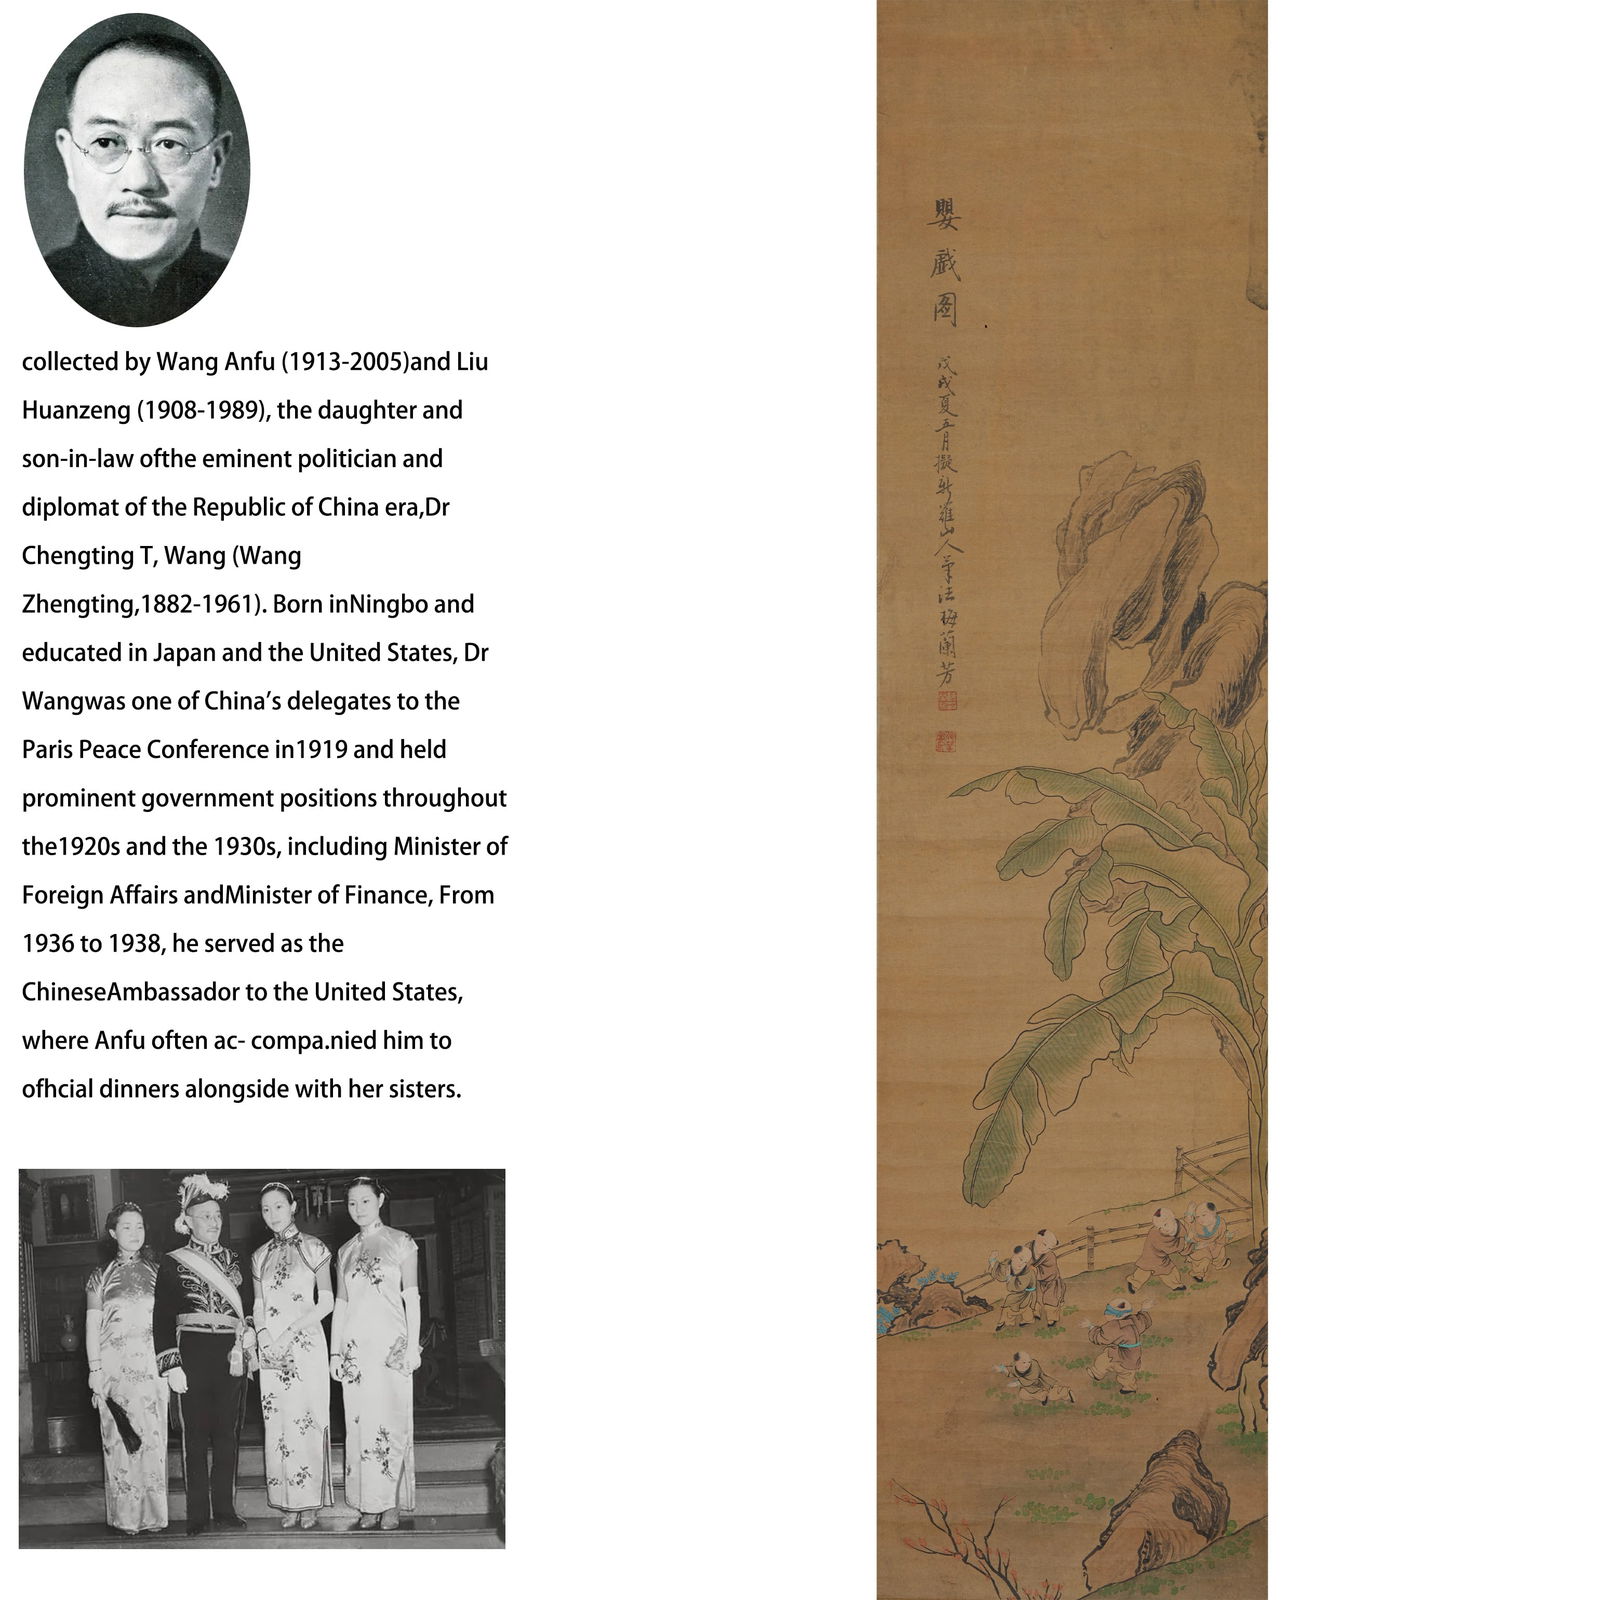 collected by Wang Anfu (1913-2005)and Liu
Huanzeng (1908-1989), the daughter and
son-in-law ofthe eminent politician and
diplomat of the Republic of China era,Dr
Chengting T, Wang (Wang
Zhengting,1882-1961). Born inNingbo and
educated in Japan and the United States, Dr
Wangwas one of China’s delegates to the
Paris Peace Conference in1919 and held
prominent government positions throughout
the1920s and the 1930s, including Minister of
Foreign Affairs andMinister of Finance, From
1936 to 1938, he served as the
ChineseAmbassador to the United States,
where Anfu often ac- compa.nied him to
ofhcial dinners alongside with her sisters.
嬰戲图
戊戌夏五月擬新羅山人筆法梅蘭芳